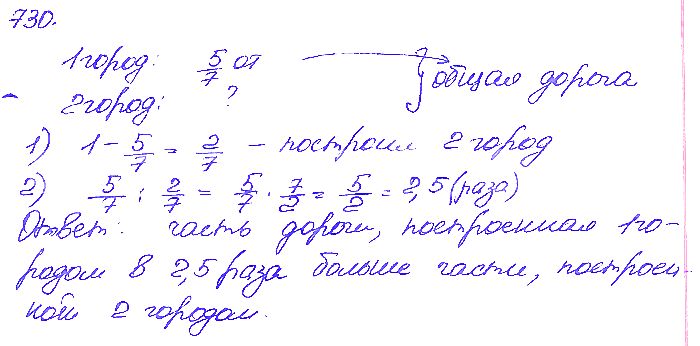 730.
1город: 5/7 от } общая дорога
2город: ?
1) 1 - 5/7 = 2/7 - построил 2 город
2) 5/7 : 2/7 = 5/7 · 7/2 = 5/2 = 2,5 (раза)
Ответ: часть дороги, построенная 1го-
родом в 2,5 раза больше части, построен
ной 2 городом.